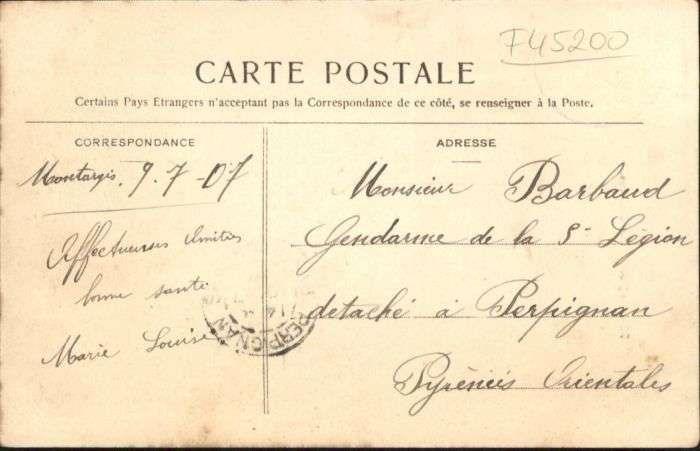 F45200
CARTE POSTALE
Certains Pays Etrangers n'acceptant pas la Correspondance de ce côté, se renseigner à la Poste.
CORRESPONDANCE
Montargis. 9-7-07
Affectueuses Amitiés
bonne santé
Marie Louise
ADRESSE
Monsieur Barbaud
Gendarme de la 5e Légion
detaché à Perpignan
Pyrénées Orientales
PERPIGNAN